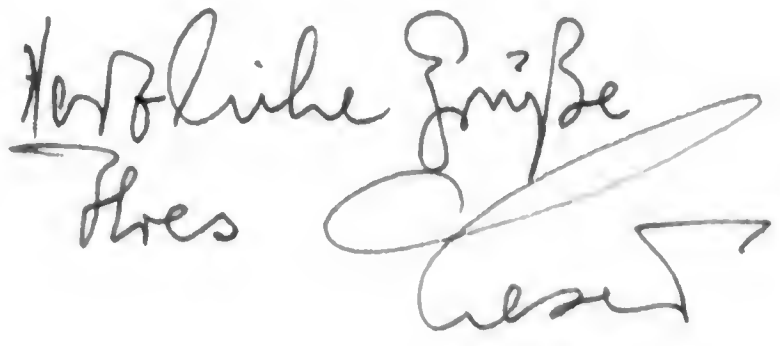 Herzliche Grüße
Ihres